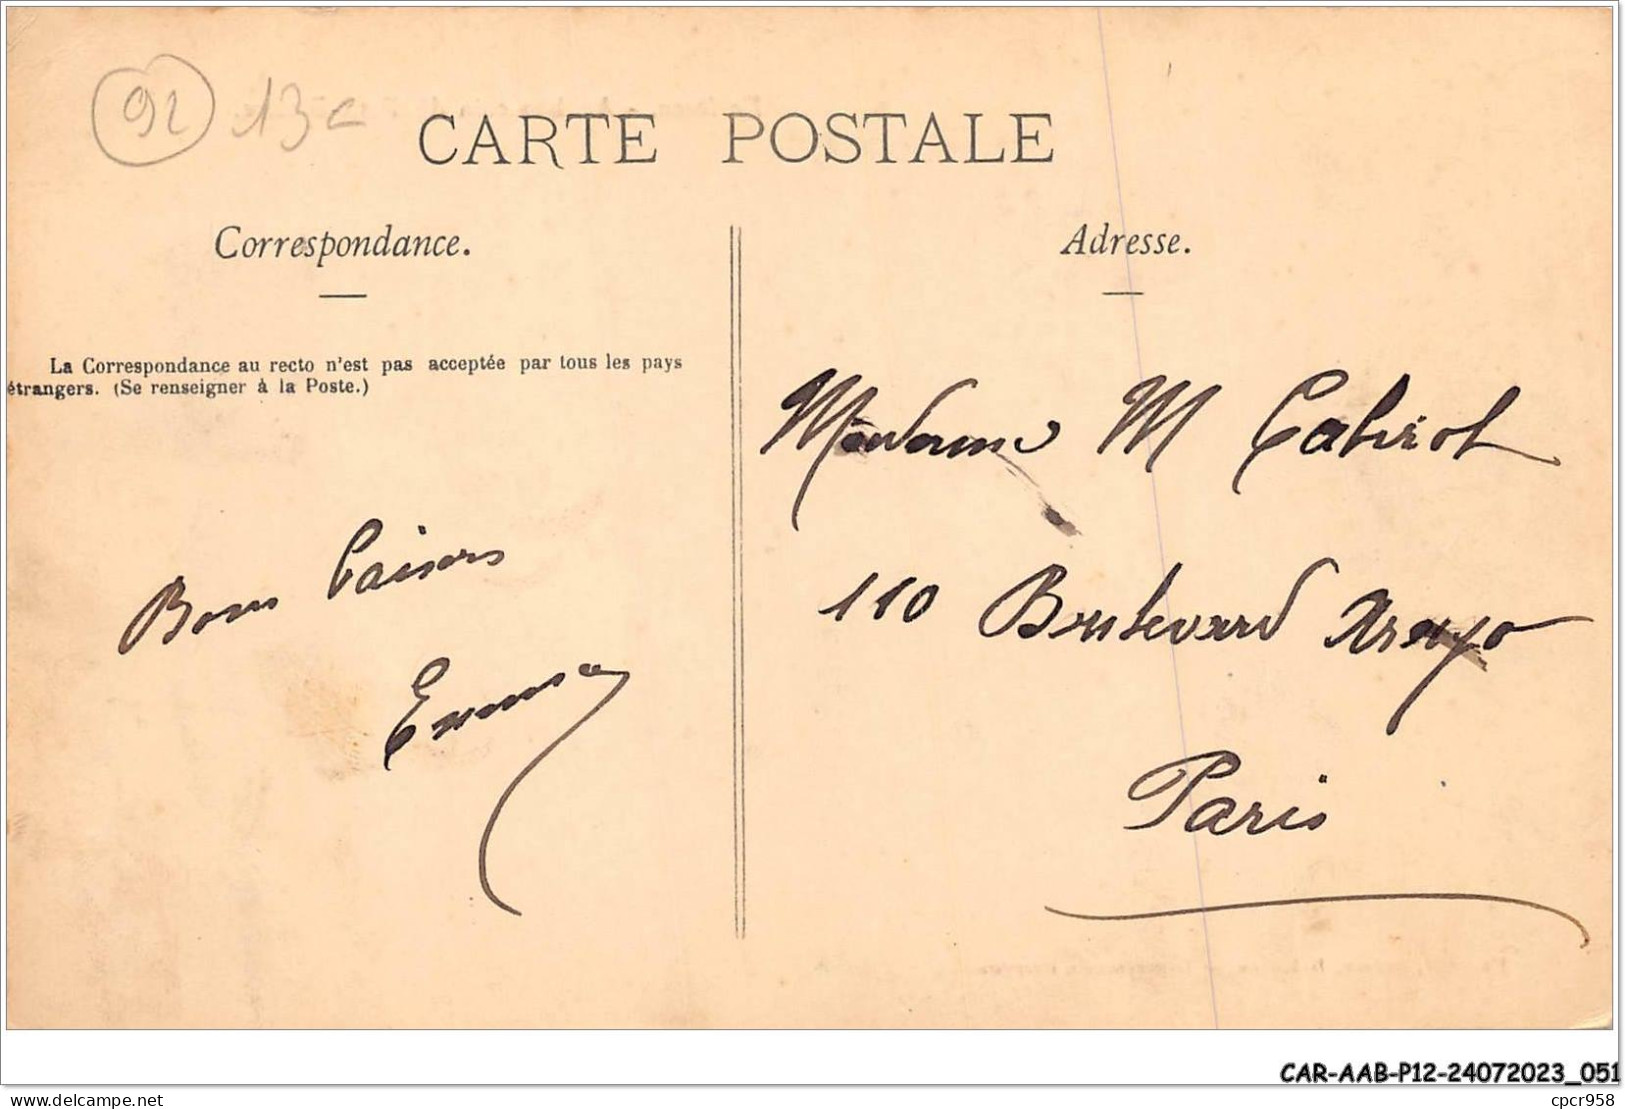 92 13c
CARTE POSTALE
Correspondance.
La Correspondance au recto n'est pas acceptée par tous les pays
étrangers. (Se renseigner à la Poste.)
Bons baisers
Emma
Adresse.
Madame M Cabirol
110 Boulevard Arago
Paris
CAR-AAB-P12-24072023_051
www.delcampe.net
cpcr958